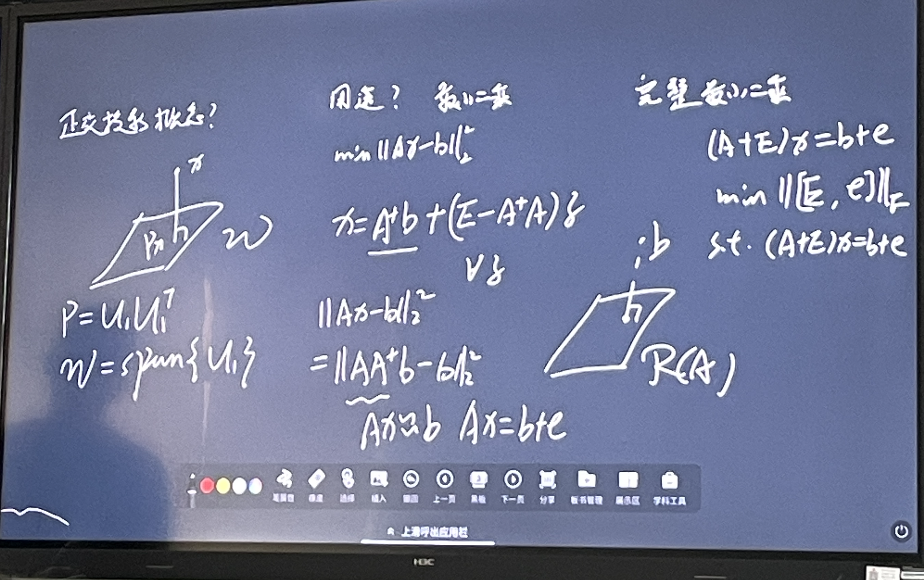 正交投影概念?
x
Px
W
P=U₁U₁ᵀ
W=span{U₁}
用途? 最小二乘
min ||Ax-b||₂²
x=A⁺b+(E-A⁺A)z
∀z
||Ax-b||₂²
=||AA⁺b-b||₂²
Ax≈b Ax=b+e
b
R(A)
完整最小二乘
(A+E)x=b+e
min ||[E, e]||_F
s.t. (A+E)x=b+e
选择
插入
撤回
上一页
下一页
分享
板书管理
展示区
学科工具
上滑呼出应用栏
H3C